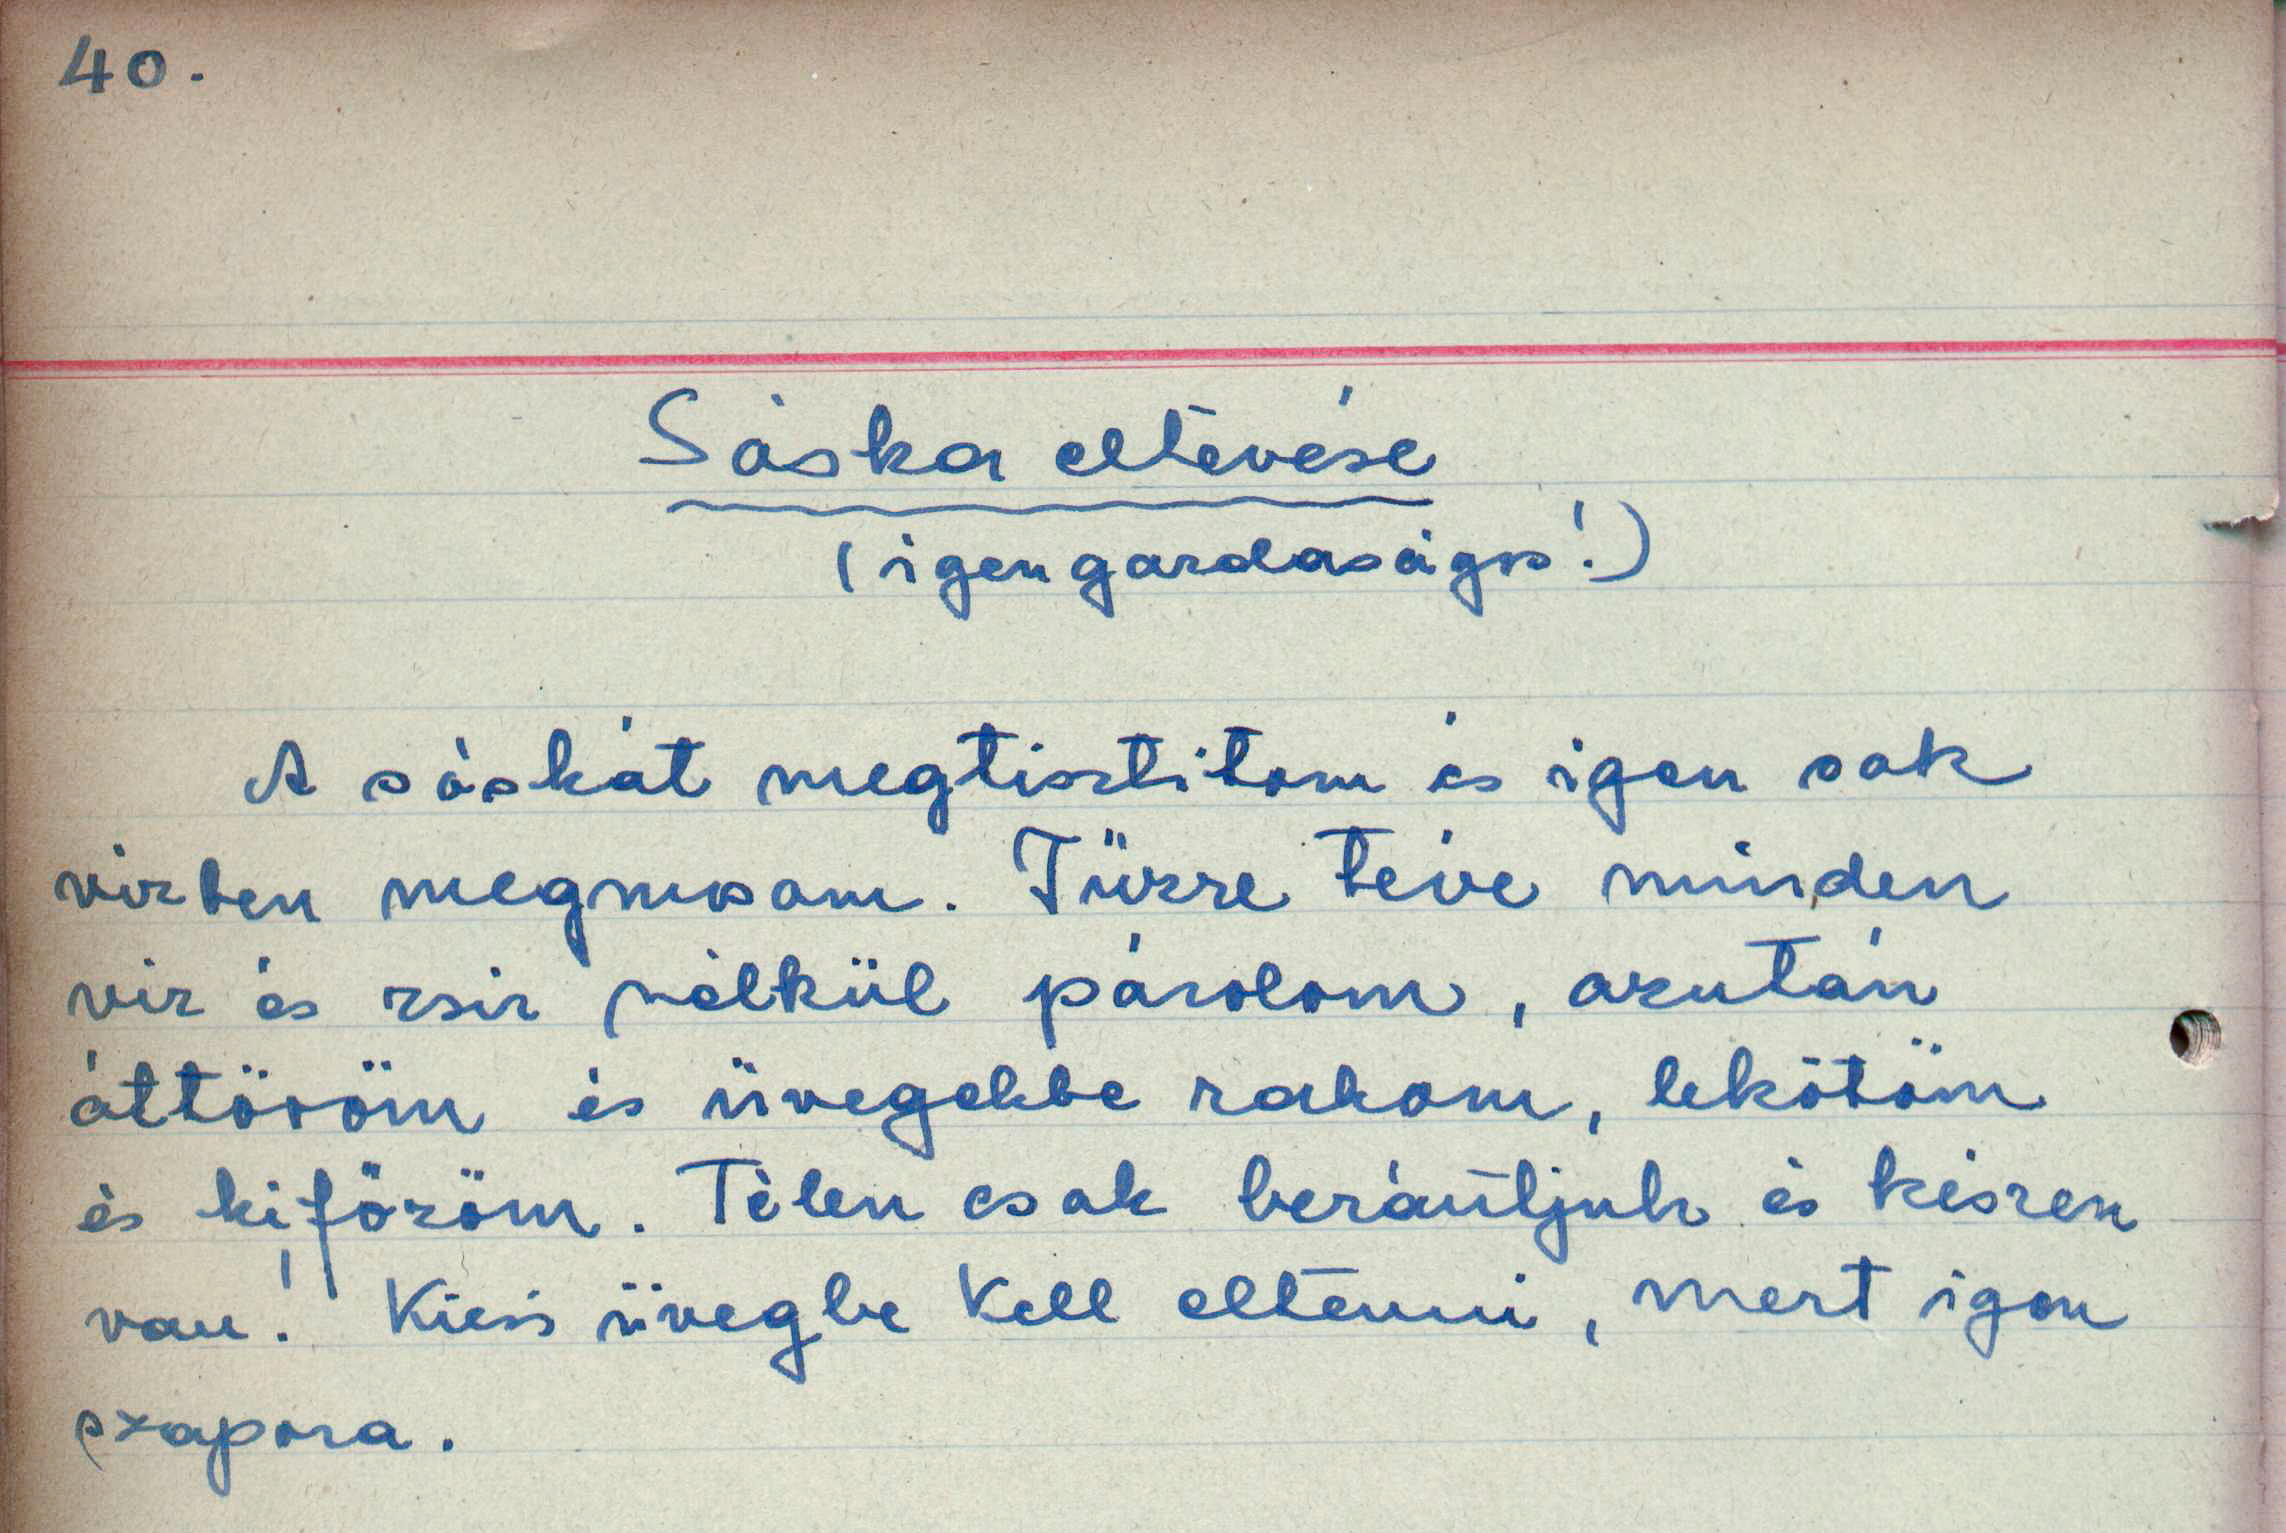 40.
Sóska eltevése
(igen gazdaságos!)
A sóskát megtisztitom és igen sok
vizben megmosom. Tűzre téve minden
viz és zsir nélkül párolom, azután
áttöröm és üvegekbe rakom, lekötöm
és kifőzöm. Télen csak berántjuk és készen
van! Kicsi üvegbe kell eltenni, mert igen
szapora.